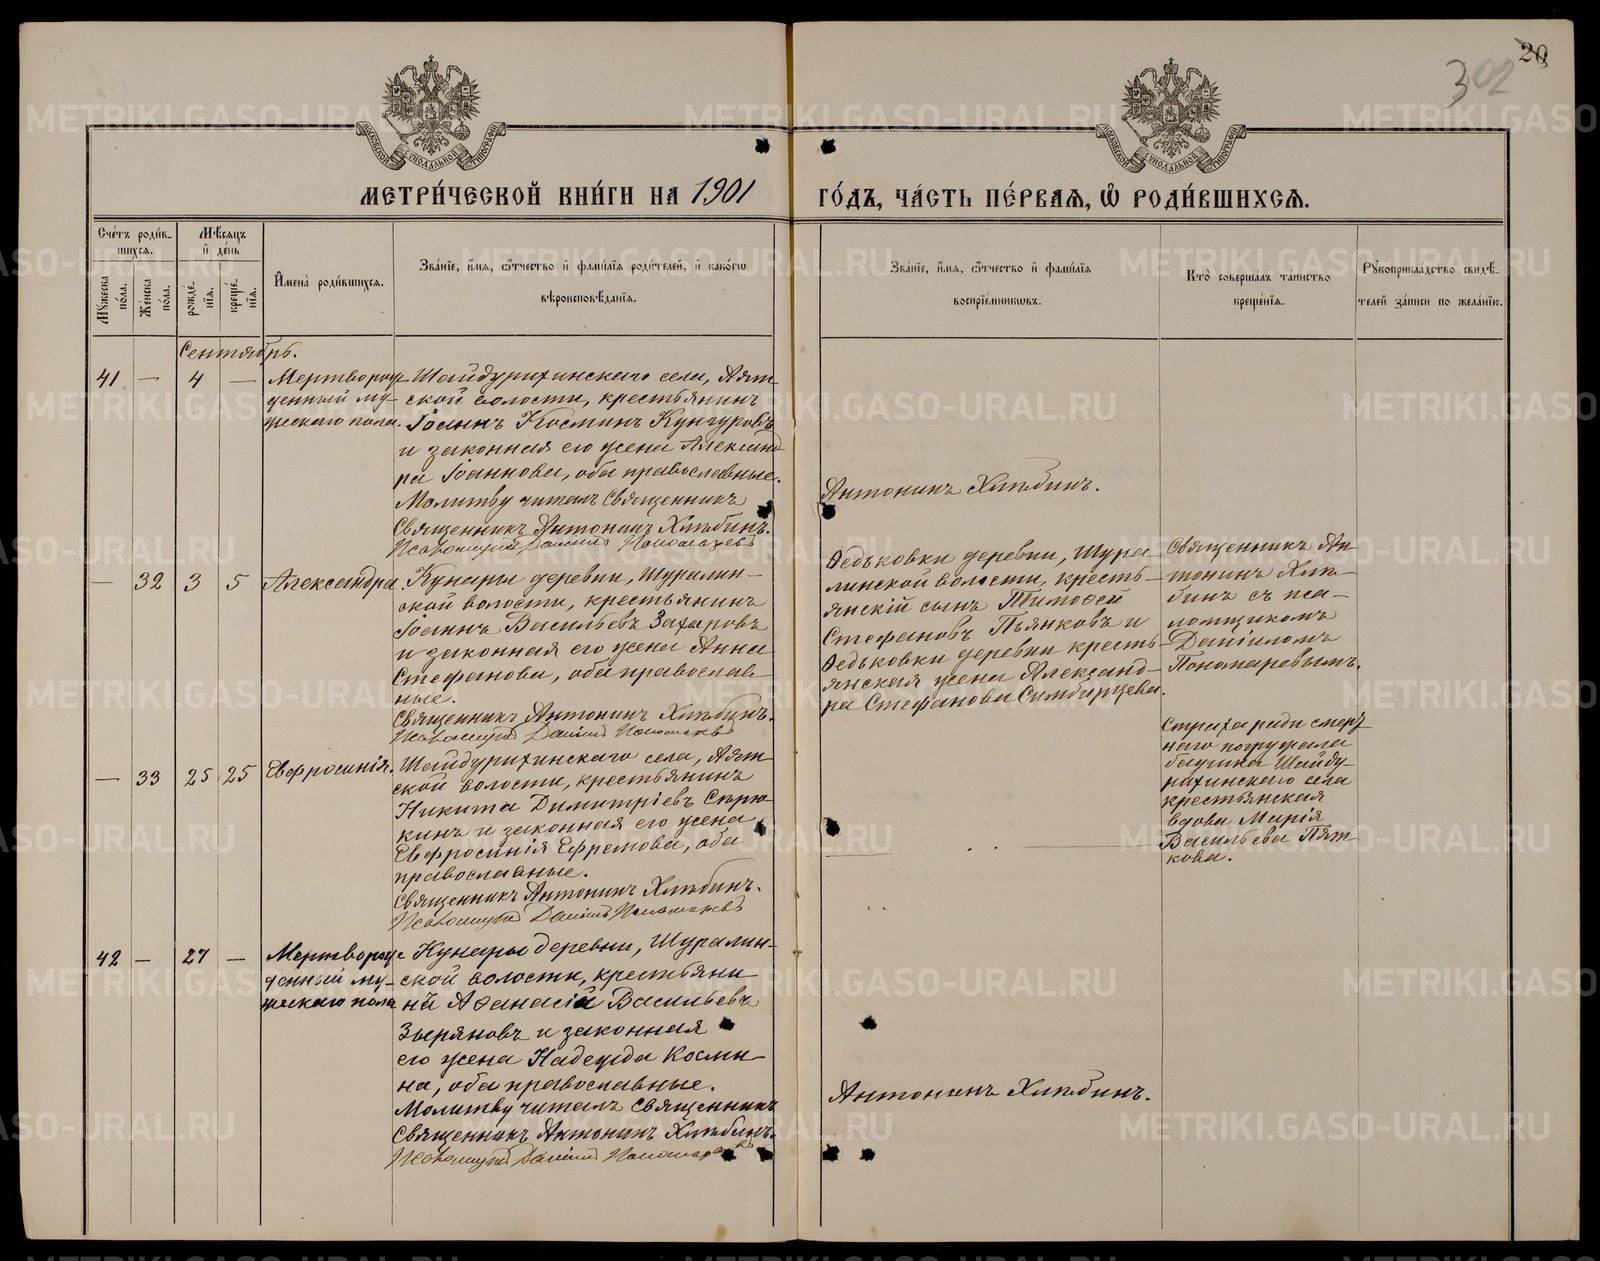 20
302
МЕТРИ́ЧЕСКОЙ КНИ́ГИ НА 1901 ГО́ДЪ, ЧА́СТЬ ПЕ́РВАѦ, Ѽ РОДИ́ВШИХСѦ.
Сче́тъ роди́в-
шихсѧ.
Мѣ́сѧцъ
и҆ де́нь
Мꙋ́жеска
по́ла.
Же́нска
по́ла.
рожде́-
нїѧ.
креще́-
нїѧ.
И҆мена̀ роди́вшихсѧ.
Зва́нїе, и҆́мѧ, ѻ҆́тчество и҆ фами́лїѧ роди́телей, и҆ како́гѡ
вѣроисповѣ́данїѧ.
Зва́нїе, и҆́мѧ, ѻ҆́тчество и҆ фами́лїѧ
воспрїе́мникѡвъ.
Кто̀ соверша́лъ та́инство
креще́нїѧ.
Рꙋкоприкла́дство свидѣ́-
телей за́писи по жела́нїю.
Сентябрь.
41 — 4 —
Мертворож-
денный му-
жескаго пола.
Шайдурихинскаго села, Аят-
ской волости, крестьянинъ
Іоаннъ Косминъ Кунгуровъ
и законная его жена Александ-
ра Іоаннова, оба православные.
Молитву читалъ Священникъ
Антонинъ Хлѣбинъ.
Священникъ Антонинъ Хлѣбинъ.
Псаломщикъ Даніилъ Пономаревъ
— 32 3 5
Александра.
Кунары деревни, Шуралин-
ской волости, крестьянинъ
Іоаннъ Васильевъ Захаровъ
и законная его жена Анна
Стефанова, оба православ-
ные.
Священникъ Антонинъ Хлѣбинъ.
Псаломщикъ Даніилъ Пономаревъ
Ѳедьковки деревни, Шура-
линской волости, кресть-
янскій сынъ Тимоѳей
Стефановъ Пьянковъ и
Ѳедьковки деревни кресть-
янская жена Александ-
ра Стефанова Симбирцева.
Священникъ Ан-
тонинъ Хлѣ-
бинъ съ пса-
ломщикомъ
Даніиломъ
Пономаревымъ.
— 33 25 25
Евфросинія.
Шайдурихинскаго села, Аят-
ской волости, крестьянинъ
Никита Димитріевъ Сѣрю-
кинъ и законная его жена
Евфросинія Ефремова, оба
православные.
Священникъ Антонинъ Хлѣбинъ.
Псаломщикъ Даніилъ Пономаревъ
Страха ради смерт-
наго погружала
бабушка Шайду-
рихинскаго села
крестьянская
вдова Марія
Васильева Пят-
кова.
42 — 27 —
Мертворож-
денный му-
жескаго пола
Кунары деревни, Шуралин-
ской волости, крестьяни-
нъ Аѳанасій Васильевъ
Зыряновъ и законная
его жена Надежда Косми-
на, оба православные.
Молитву читалъ Священникъ
Антонинъ Хлѣбинъ.
Священникъ Антонинъ Хлѣбинъ.
Псаломщикъ Даніилъ Пономаревъ
METRIKI.GASO-URAL.RU